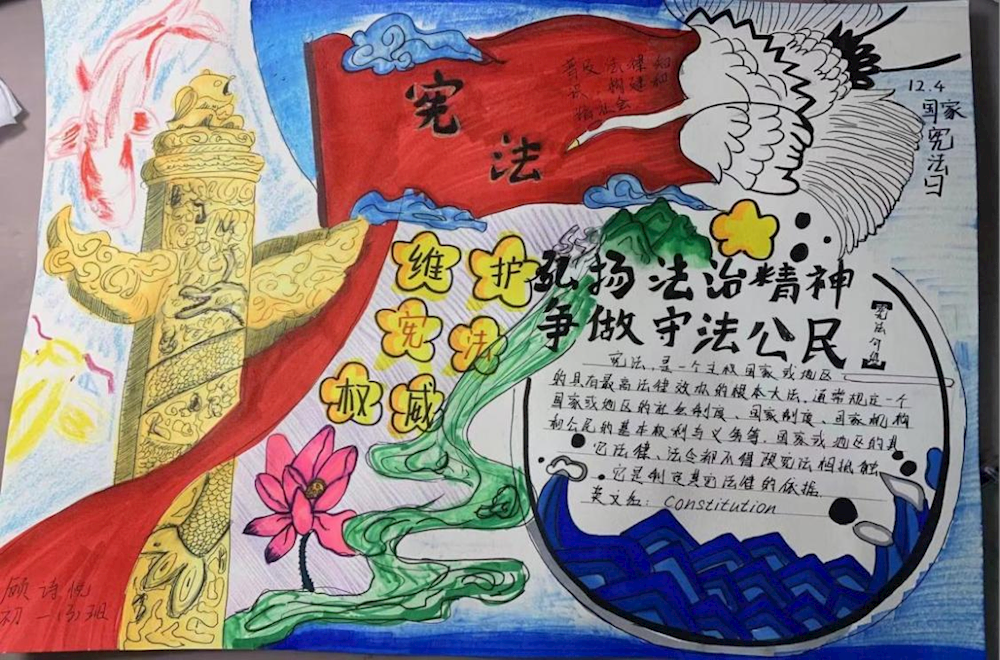 宪法
普及法律知
识，构建和
谐社会
12.4
国家宪法日
维护
宪法
权威
弘扬法治精神
争做守法公民
【宪法介绍】
宪法，是一个主权国家或地区
的具有最高法律效力的根本大法，通常规定一个
国家或地区的社会制度、国家制度、国家机构
和公民的基本权利与义务等，国家或地区的其
它法律、法令都不得跟宪法相抵触，
它是制定其它法律的依据。
英文名：Constitution
顾诗悦
初一